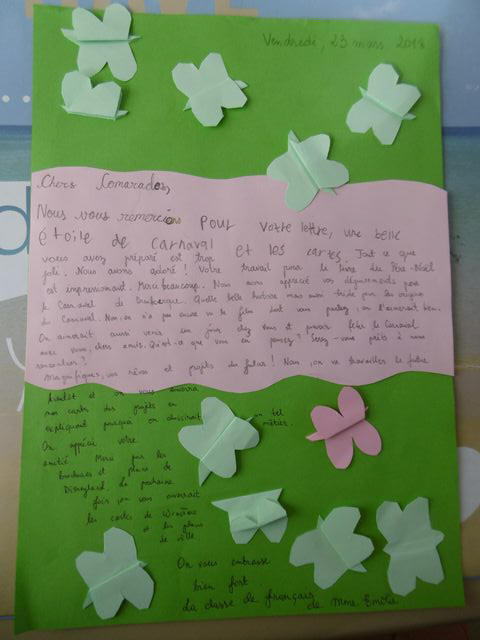 Vendredi, 23 mars 2018
Chers Camarades,
Nous vous remercions pour votre lettre, une belle
étoile de Carnaval et les cartes. Tout ce que
vous avez préparé est trop
joli. Nous avons adoré! Votre travail pour le livre du Père-Noël
est impressionant. Merci beaucoup. Nous avons apprécié vos déguisements pour
le Carnaval de Dunkerque. Quelle belle histoire mais aussi triste pour les origines
du Carnaval. Non, on n'a pas encore vu le film dont vous parlez, on l'aimerait bien.
On aimerait aussi venir un jour chez vous et pouvoir fêter le Carnaval
avec vous, chers amis. Qu'est-ce que vous en pensez? Serez-vous prêts à nous
rencontrer?
Magnifiques, vos rêves et projets du futur! Nous, on va travailler le futur
et on vous enverra
nos cartes des projets en
expliquant pourquoi on choisirait un tel
métier.
On apprécie votre
amitié. Merci pour les
brochures et plans de
Disneyland. La prochaine
fois on vous enverrait
les cartes de
et les plans
de ville.
On vous embrasse
bien fort.
La classe de français de Mme Emilie